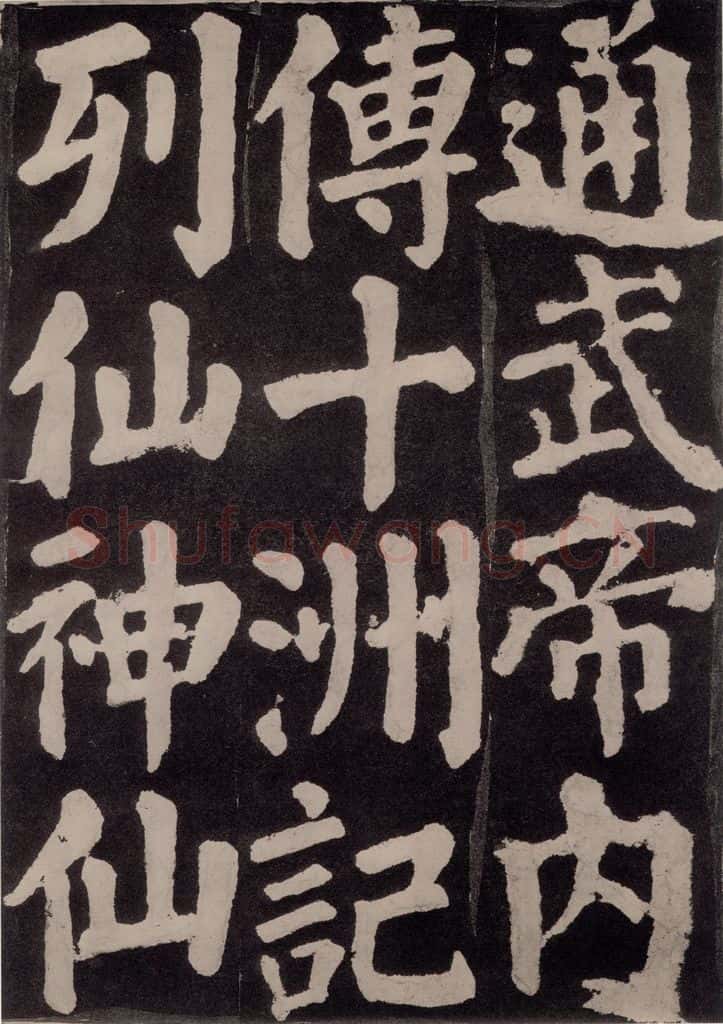 通武帝内
傳十洲記
列仙神仙
Shufawang.CN